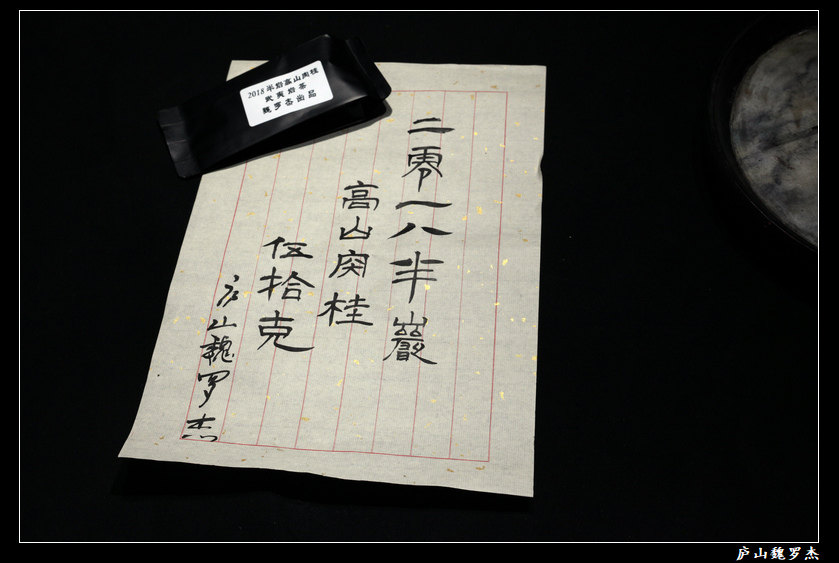 2018半岩高山肉桂
武夷岩茶
魏罗杰出品
二零一八半巖
高山肉桂
伍拾克
庐山魏罗杰
庐山魏罗杰